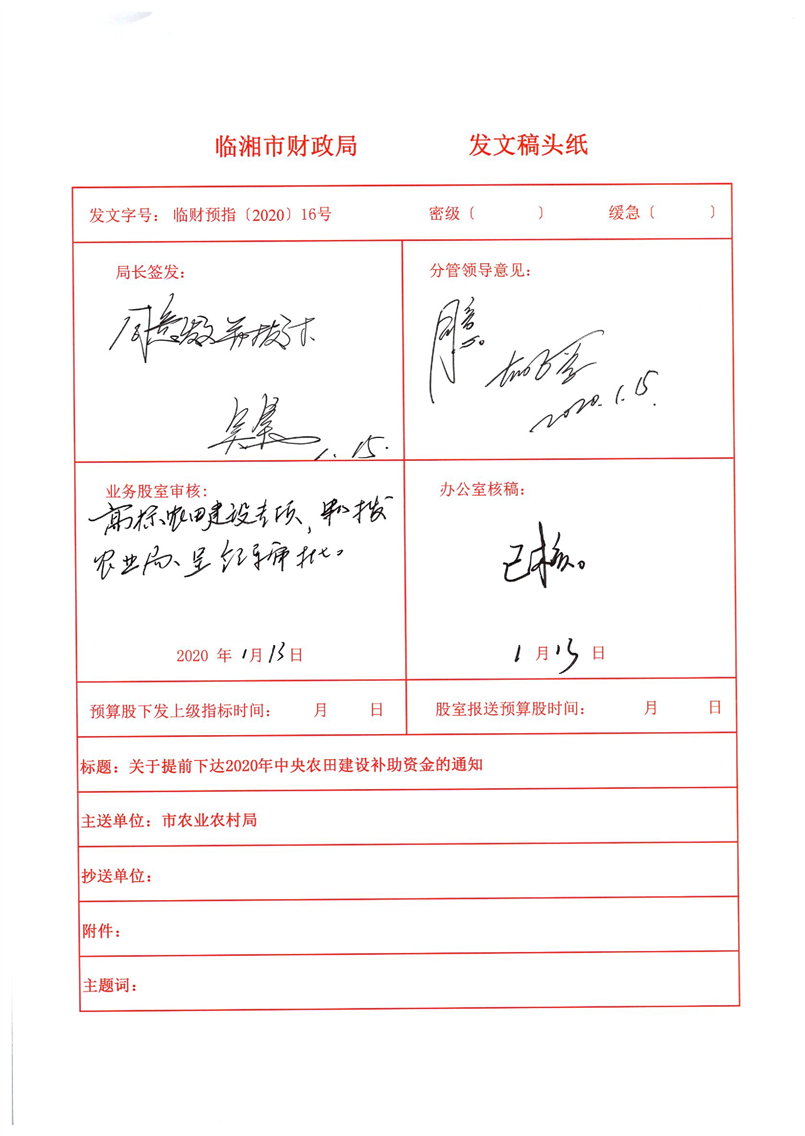 临湘市财政局 发文稿头纸
发文字号：临财预指〔2020〕16号 密级〔 〕 缓急〔 〕
局长签发：
同意发并拨付
1.15.
分管领导意见：
同意。
2020.1.15.
业务股室审核：
高标农田建设专项，
农业局、呈领导审批。
2020 年 1月 13日
办公室核稿：
已核。
1 月 13 日
预算股下发上级指标时间： 月 日
股室报送预算股时间： 月 日
标题：关于提前下达2020年中央农田建设补助资金的通知
主送单位：市农业农村局
抄送单位：
附件：
主题词：